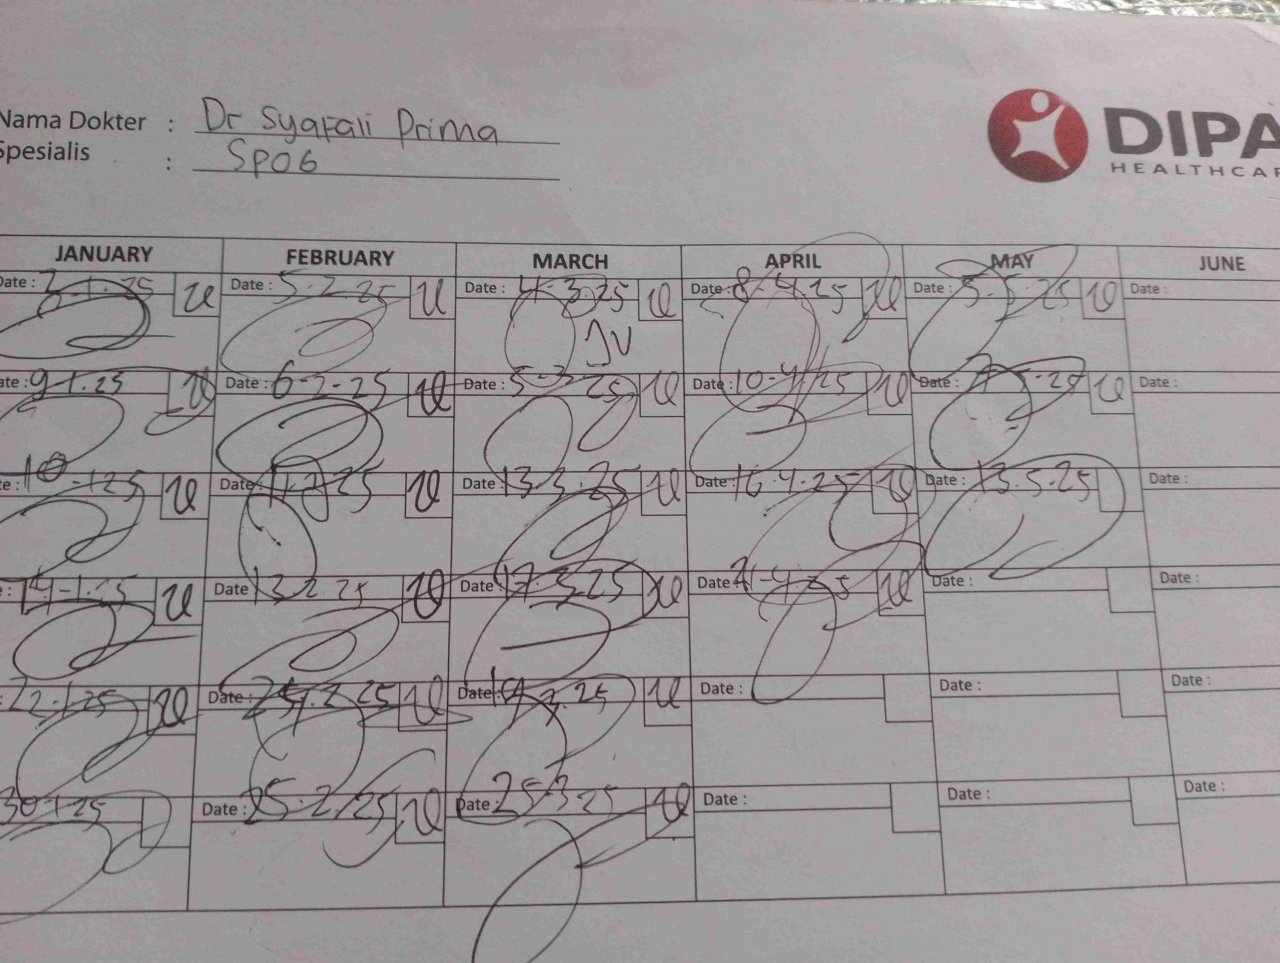 Nama Dokter : Dr Syafali Prima
Spesialis : SPOG
DIPA
HEALTHCAR
JANUARY FEBRUARY MARCH APRIL MAY JUNE
Date : Date : 5-2-25 Date : 4-3-25 Date : 8-4-25 Date : 5-5-25 Date :
JV
Date : 9-1-25 Date : 6-2-25 Date : 5-3-25 Date : 10-4-25 Date : 7-5-25 Date :
Date : 10-1-25 Date : Date : 13-3-25 Date : 16-4-25 Date : 13-5-25 Date :
14-1-25 Date 13-2-25 Date 17-3-25 Date 21-4-25 Date : Date :
22-1-25 Date : Date 19-3-25 Date : Date : Date :
30-1-25 Date : 25-2-25 Date : 25-3-25 Date : Date : Date :